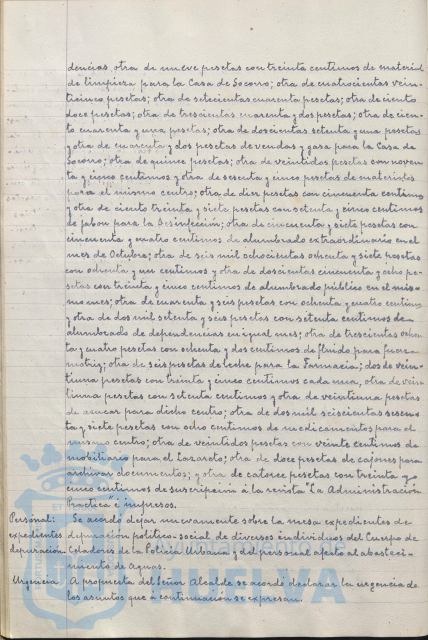 dencias, otra de nueve pesetas con treinta centimos de material
de limpieza para la Casa de Socorro; otra de cuatrocientas vein-
ticinco pesetas; otra de setecientas cuarenta pesetas; otra de ciento
doce pesetas; otra de trescientas cuarenta y dos pesetas; otra de cien-
to cuarenta y una pesetas; otra de doscientas setenta y una pesetas
y otra de cuarenta y dos pesetas de vendas y gasa para la Casa de
Socorro; otra de quince pesetas; otra de veintidos pesetas con noven-
ta y cinco centimos y otra de sesenta y cinco pesetas de materiales
para el mismo centro; otra de diez pesetas con cincuenta centimos
y otra de ciento treinta y siete pesetas con setenta y cinco centimos
de jabon para la Desinfección; otra de cincuenta y siete pesetas con
cincuenta y cuatro centimos de alumbrado extraordinario en el
mes de Octubre; otra de seis mil ochocientas ochenta y siete pesetas
con ochenta y un centimos y otra de doscientas cincuenta y ocho pe-
setas con treinta y cinco centimos de alumbrado público en el mis-
mo mes; otra de cuarenta y seis pesetas con ochenta y cuatro centimos
y otra de dos mil setenta y seis pesetas con setenta centimos de
alumbrado de dependencias en igual mes; otra de trescientas ochen-
ta y cuatro pesetas con ochenta y dos centimos de fluido para fuerza
motriz; otra de seis pesetas de leche para la Farmacia; dos de vein-
tiuna pesetas con treinta y cinco centimos cada una, otra de vein-
tiuna pesetas con setenta centimos y otra de veintiuna pesetas
de azucar para dicho centro; otra de dos mil seiscientas sesen-
ta y siete pesetas con ocho centimos de medicamentos para el
mismo centro; otra de veintidos pesetas con veinte centimos de
mobiliario para el Lazareto; otra de doce pesetas de cajones para
archivar documentos; y otra de catorce pesetas con treinta y
cinco centimos de suscripción á la revista "La Administración
Practica" é impresos.
Personal: Se acordó dejar nuevamente sobre la mesa expedientes de
expedientes depuración politico-social de diversos individuos del Cuerpo de
depuracion Celadores de la Policia Urbana y del personal afecto al abasteci-
miento de Aguas.
Urgencia A propuesta del Señor Alcalde se acordó declarar la urgencia de
los asuntos que á continuación se expresan.
HUELVA